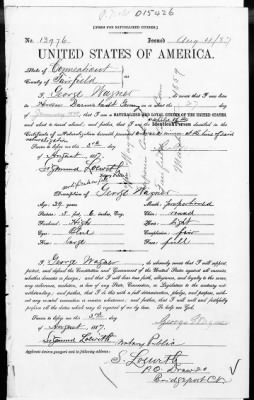 015426
[FORM FOR NATURALIZED CITIZEN.]
No. 13976. Issued Aug 11/87
UNITED STATES OF AMERICA.
State of Connecticut
County of Fairfield
I George Wagner do swear that I was born
at on the 27
January that I am a NATURALIZED AND LOYAL CITIZEN OF THE UNITED STATES,
and about to travel abroad; and further, that I am the identical person described in the
Certificate of Naturalization herewith presented was a minor at the time of said
naturalization
Sworn to before me this 3rd day
of August 1887.
Sigmund Loewith
Notary Public
Description of George Wagner
Age: 29 years. Mouth: proportioned
Stature: 5 feet, 6 inches, Eng. Chin: round
Forehead: High Hair: Light
Eyes: Complexion: fair
Nose: large Face: full
I George Wagner do solemnly swear that I will support,
protect, and defend the Constitution and Government of the United States against all enemies,
whether domestic or foreign; and that I will bear true faith, allegiance, and loyalty to the same,
any ordinance, resolution, or law of any State, Convention, or Legislature to the contrary not-
withstanding; and further, that I do this with a full determination, pledge, and purpose, with-
out any mental reservation or evasion whatsoever; and further, that I will well and faithfully
perform all the duties which may be required of me by law. So help me God.
Sworn to before me this 3rd day George Wagner
of August 1887.
Sigmund Loewith Notary Public
Applicant desires passport sent to following address:
S. Loewith
P.O. Drawer
Bridgeport Ct